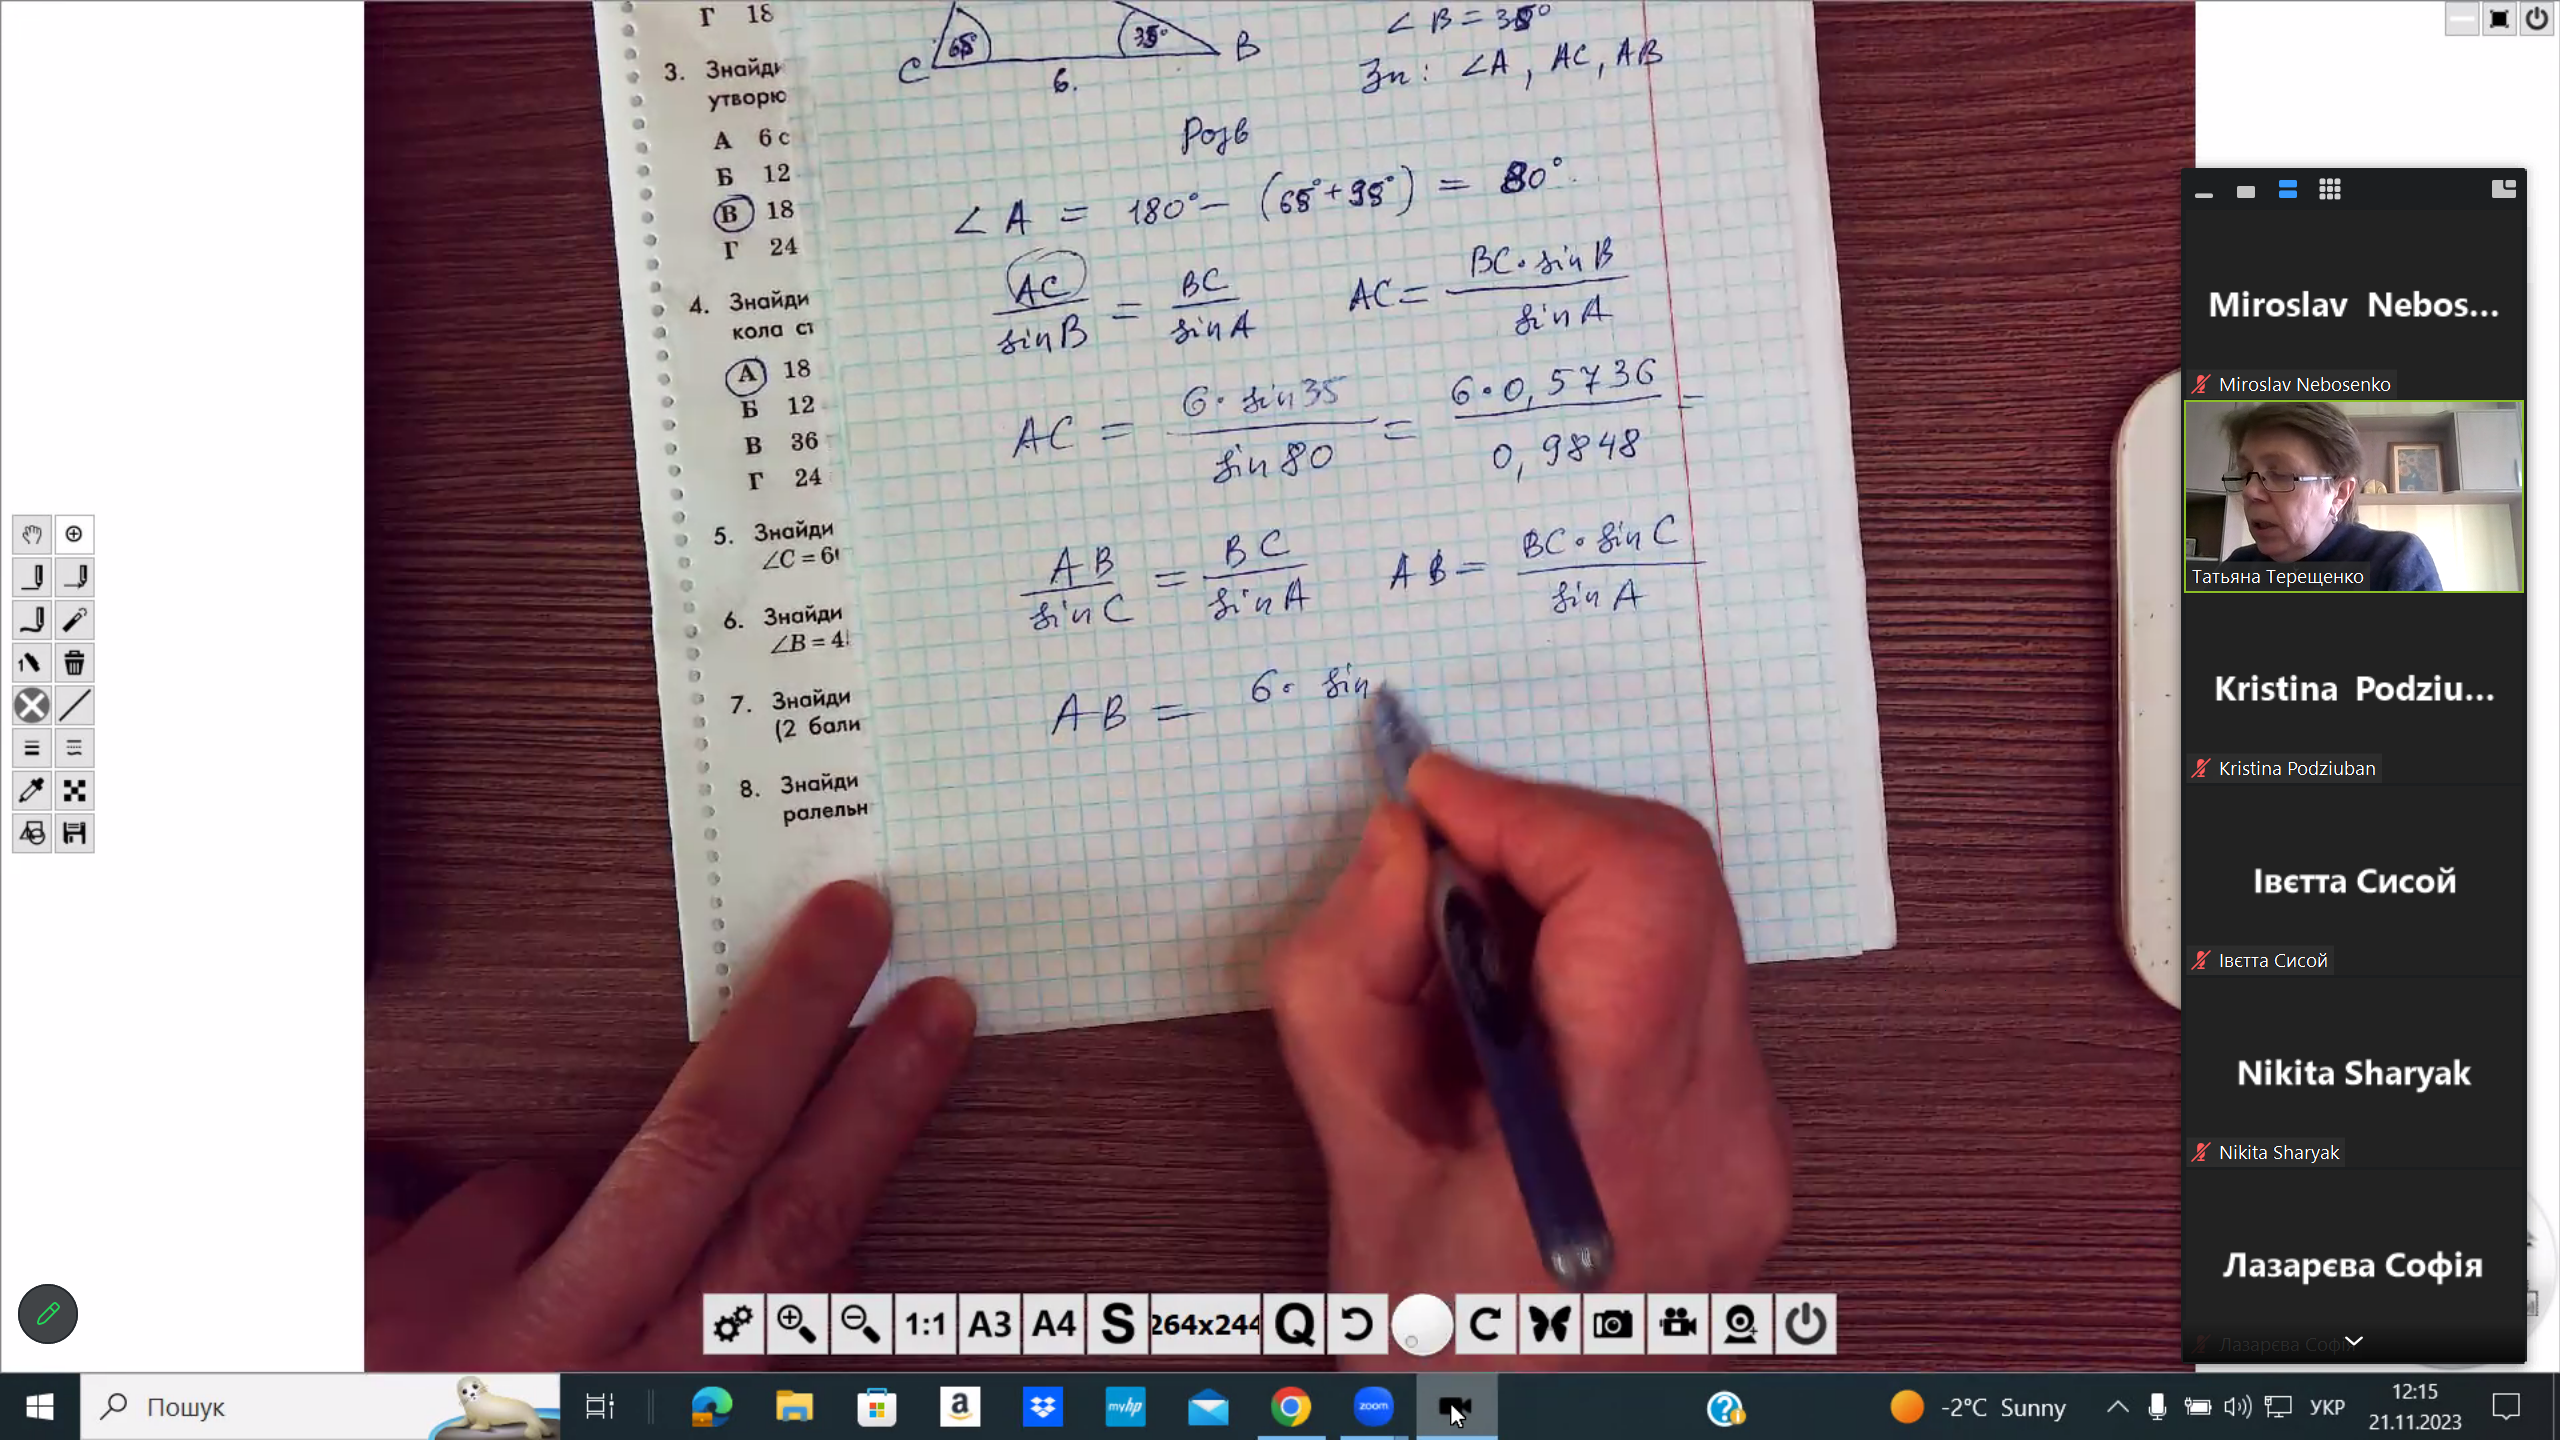 Г 18
3. Знайди
утворю
А 6 с
Б 12
В 18
Г 24
4. Знайди
кола ст
А 18
Б 12
В 36
Г 24
5. Знайди
∠C = 60
6. Знайди
∠B = 4
7. Знайди
(2 бали
8. Знайди
ралельн
65° 35°
C 6. B
∠B = 35°
Зн: ∠A, AC, AB
Розв
∠A = 180° − (65° + 35°) = 80°.
AC / sin B = BC / sin A AC = BC · sin B / sin A
AC = 6 · sin 35 / sin 80 = 6 · 0,5736 / 0,9848 =
AB / sin C = BC / sin A AB = BC · sin C / sin A
AB = 6 · sin
Miroslav Nebos...
Miroslav Nebosenko
Татьяна Терещенко
Kristina Podziu...
Kristina Podziuban
Івєтта Сисой
Івєтта Сисой
Nikita Sharyak
Nikita Sharyak
Лазарєва Софія
Лазарєва Софія
1:1 A3 A4 S 264x244 Q
Пошук
a
myhp
zoom
-2°C Sunny
УКР
12:15
21.11.2023